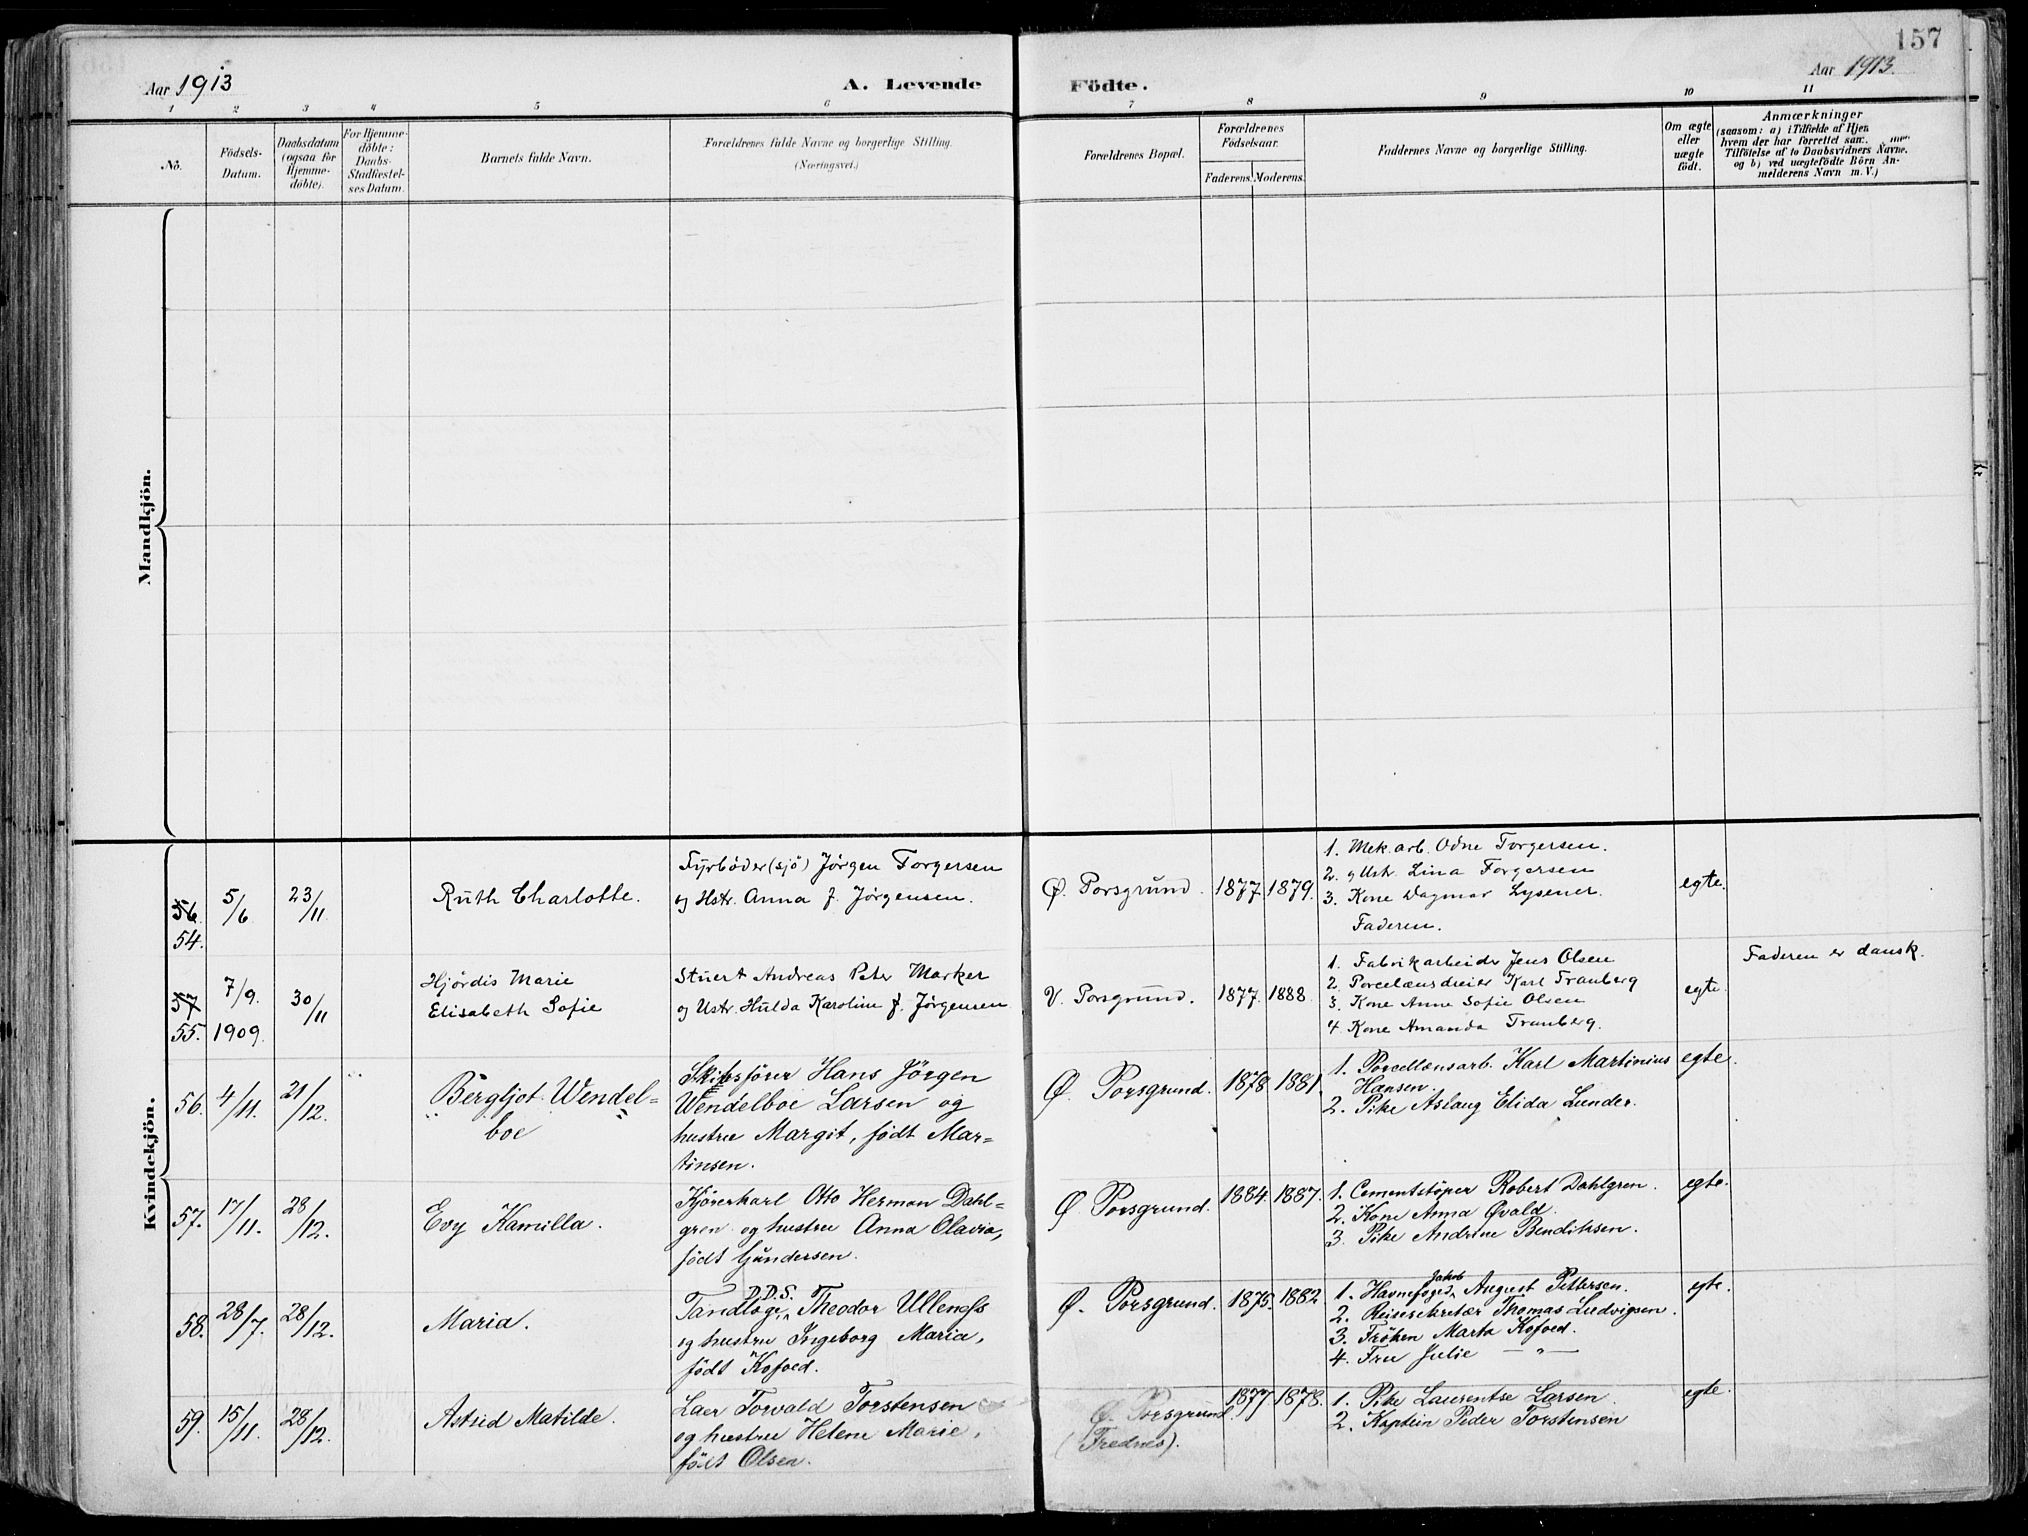 157
Aar 1913
A. Levende
Födte.
Aar 1913.
1 2 3 4 5 6 7 8 9 10 11
No.
Födsels-
Datum.
Daabsdatum
(ogsaa for
Hjemme-
döbte).
For Hjemme-
döbte:
Daabs-
Stadfæstel-
ses Datum.
Barnets fulde Navn.
Forældrenes fulde Navne og borgerlige Stilling.
(Næringsvei.)
Forældrenes Bopæl.
Forældrenes
Födselsaar.
Faderens. Moderens.
Faddernes Navne og borgerlige Stilling.
Om ægte
eller
uægte
födt.
Anmærkninger
(saasom: a) i Tilfælde af Hjem
hvem der har forrettet sam.
Tilföielse af to Daabsvidners Navne.
og b) ved uægtefödte Börn An-
melderens Navn m. V.)
Mandkjön.
Kvindekjön.
56.
54.
5/6
23/11
Ruth Charlotte.
Fyrbøder (sjö) Jørgen Torgersen
og Hstr. Anna f. Jørgensen.
Ø. Porsgrund.
1877. 1879.
1. Mek. arb. Odne Torgersen.
2. Hstr. Lina Torgersen
3. Kone Dagmar Lysener.
Faderen.
egte.
57
55.
7/9.
1909.
30/11
Hjørdis Marie
Elisabeth Sofie
Stuert Andreas Peter Marker
og Hstr. Hulda Karoline f. Jørgensen
V. Porsgrund.
1877. 1888.
1. Fabrikarbeider Jens Olsen
2. Porcelænsdreier Karl Tranberg
3. Kone Anne Sofie Olsen
4. Kone Amanda Tranberg.
egte.
Faderen er dansk.
56.
4/11.
21/12.
Bergljot Wendel=
boe
Skibsfører Hans Jörgen
Wendelboe Larsen og
hustru Margit, født Mar=
tinsen.
Ø. Porsgrund.
1878. 1881.
1. Porcellænsarb. Karl Martinius
Hansen.
2. Pike Aslaug Elida Lunder.
egte.
57.
17/11.
28/12.
Evy Kamilla.
Kjörerkarl Otto Herman Dahl=
gren og hustru Anna Olavia,
født Gundersen.
Ø. Porsgrund.
1884. 1887.
1. Cementstöper Robert Dahlgren.
2. Kone Anna Øvald.
3. Pike Andrine Bendiksen.
egte.
58.
28/7.
28/12.
Maria.
D.D.S.
Tandlæge, Theodor Ullenæss
og hustru Ingeborg Maria,
født Kofoed.
Ø. Porsgrund.
1875. 1882
Jakob
1. Havnefoged, August Pettersen.
2. Reisesekretær Thomas Ludvigsen.
3. Frøken Marta Kofoed.
4. Fru Julie — " —
egte.
59.
15/11.
28/12.
Astrid Matilde.
Laer Torvald Torstensen
og hustru Helene Marie,
født Olsen.
Ø. Porsgrund.
(Frednes).
1877. 1878.
1. Pike Laurentse Larsen.
2. Kaptein Peder Torstensen
egte.